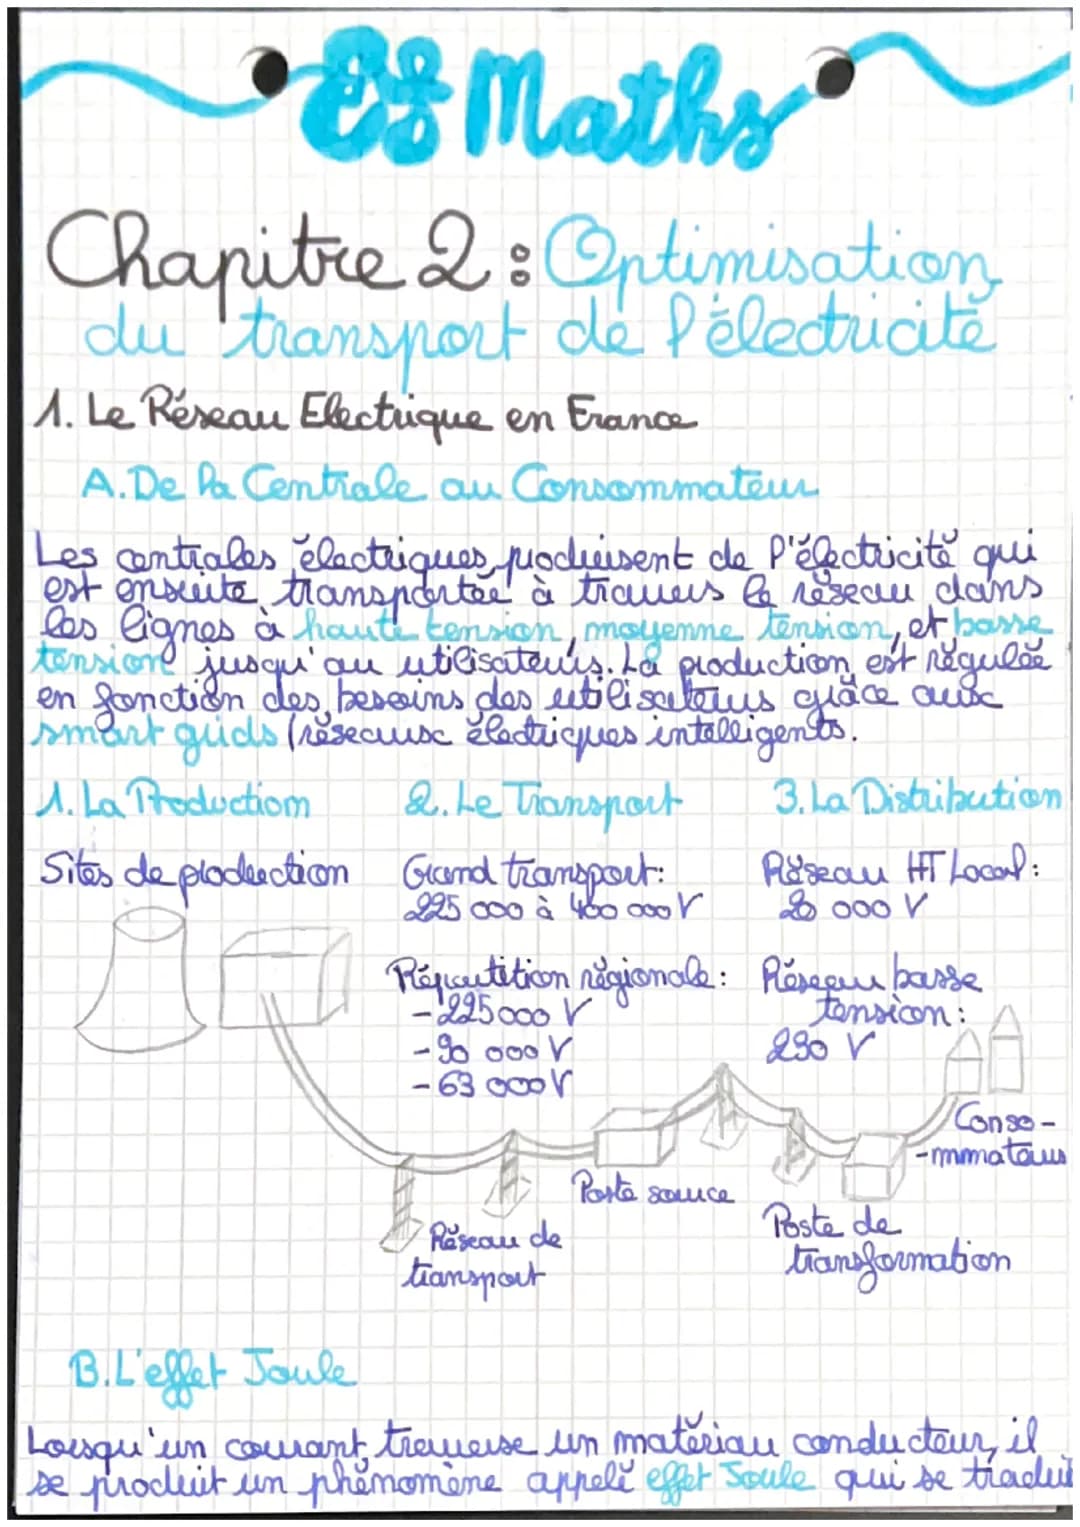 ES Maths
Chapitre 2 : Optimisation
du transport de l'électricité
1. Le Réseau Electrique en France
A. De la Centrale au Consommateur
Les centrales électriques produisent de l'électricité qui
est ensuite transportée à travers le réseau dans
les lignes à haute tension, moyenne tension, et basse
tension jusqu'au utilisateurs. La production est régulée
en fonction des besoins des utilisateurs grâce aux
smart grids (réseaux électriques intelligents.
1. La Production
2. Le Transport
3. La Distribution
Sites de production
Grand transport:
225 000 à 400 000 V
Réseau HT Local:
20 000 V
Répartition régionale:
- 225000 V
- 90 000 V
- 63 000 V
Réseau basse
tension:
230 V
Conso-
-mmateurs
Poste source
Réseau de
transport
Poste de
transformation
B. L'effet Joule
Lorsqu'un courant traverse un matériau conducteur, il
se produit un phénomène appelé effet Joule qui se traduit